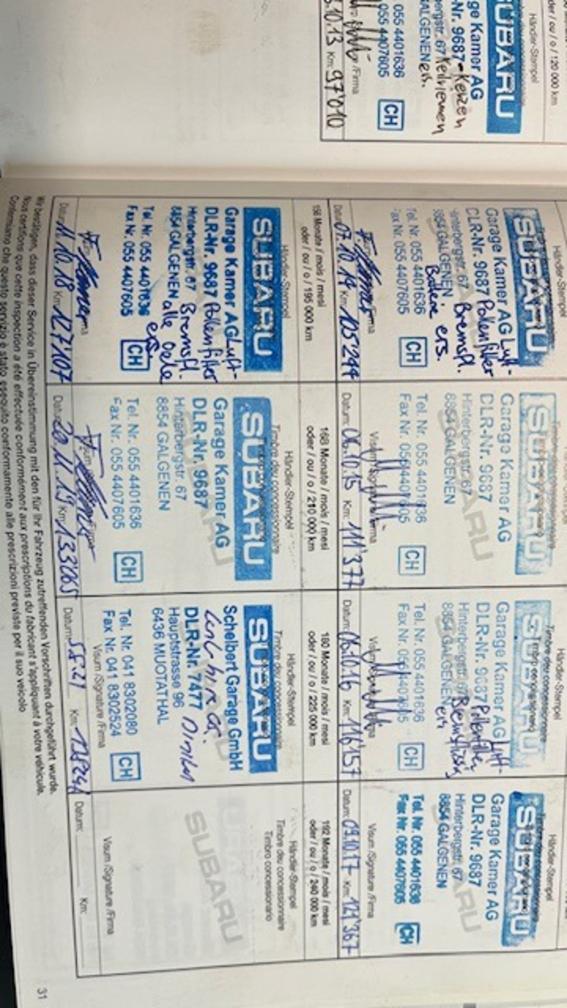 oder / ou / o / 120 000 km
Händler-Stempel
SUBARU
ge Kamer AG
-Nr. 9687
Kerzen
ergstr. 67
Keilriemen
GALGENEN
ers.
055 4401636
055 4407605
CH
/Firma
.10.13 Km: 97'010
Händler-Stempel
SUBARU
Garage Kamer AG Luft-
DLR-Nr. 9687 Pollenfilter
Hinterbergstr. 67 Bremsfl.
8854 GALGENEN
ers.
Tel. Nr. 055 4401636
Fax Nr. 055 4407605
CH
Datum: 07.10.14 Km: 105'294
Timbre du concessionnaire
SUBARU
Garage Kamer AG
DLR-Nr. 9687
Hinterbergstr. 67
8854 GALGENEN
Tel. Nr. 055 4401636
Fax Nr. 055 4407605
CH
Datum: 06.10.15 Km: 111'377
Händler-Stempel
Timbre du concessionnaire
SUBARU
Garage Kamer AG Luft-
DLR-Nr. 9687 Pollenfilter
Hinterbergstr. 67 Bremsflüss.
8854 GALGENEN ers
Tel. Nr. 055 4401636
Fax Nr. 055 4407605
CH
Datum: 06.10.16 Km: 116'157
Händler-Stempel
SUBARU
Garage Kamer AG
DLR-Nr. 9687
Hinterbergstr. 67
8854 GALGENEN
Tel. Nr. 055 4401636
Fax Nr. 055 4407605
CH
Visum /Signature /Firma
Datum: 09.10.17 Km: 121'367
156 Monate / mois / mesi
oder / ou / o / 195 000 km
Händler-Stempel
SUBARU
Garage Kamer AG Luft-
DLR-Nr. 9687 Pollenfilter
Hinterbergstr. 67 Bremsfl.
8854 GALGENEN alle Oele
Tel. Nr. 055 4401636 ers.
Fax Nr. 055 4407605
CH
Datum: 11.10.18 Km: 127107
168 Monate / mois / mesi
oder / ou / o / 210 000 km
Händler-Stempel
Timbre du concessionnaire
SUBARU
Garage Kamer AG
DLR-Nr. 9687
Hinterbergstr. 67
8854 GALGENEN
Tel. Nr. 055 4401636
Fax Nr. 055 4407605
CH
Datum: 20.11.19 Km: 133065
180 Monate / mois / mesi
oder / ou / o / 225 000 km
Händler-Stempel
Timbre du concessionnaire
SUBARU
Schelbert Garage GmbH
DLR-Nr. 7477
Hauptstrasse 96
6436 MUOTATHAL
Tel. Nr 041 8302080
Fax Nr. 041 8302524
CH
Visum /Signature /Firma
Datum: Km:
192 Monate / mois / mesi
oder / ou / o / 240 000 km
Händler-Stempel
Timbre du concessionnaire
Timbro concessionario
SUBARU
Visum /Signature /Firma
Datum: Km:
Wir bestätigen, dass dieser Service in Übereinstimmung mit den für Ihr Fahrzeug zutreffenden Vorschriften durchgeführt wurde.
Nous certifions que cette inspection a été effectuée conformément aux prescriptions du fabricant s'appliquant à votre véhicule.
Confermiamo che questo servizio è stato eseguito conformamente alle prescrizioni previste per il suo veicolo
31